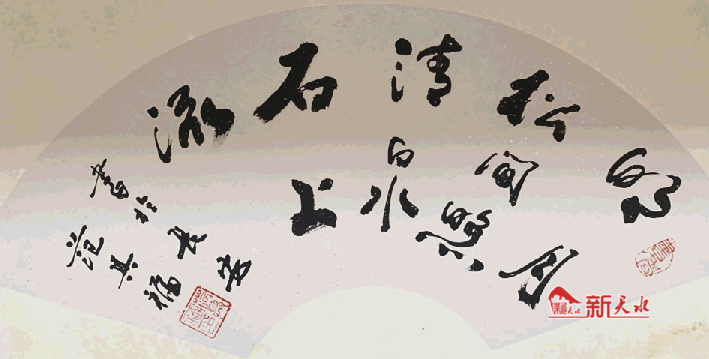 明月
松間照
清泉
石上
流
書於長安
范其福
新天水